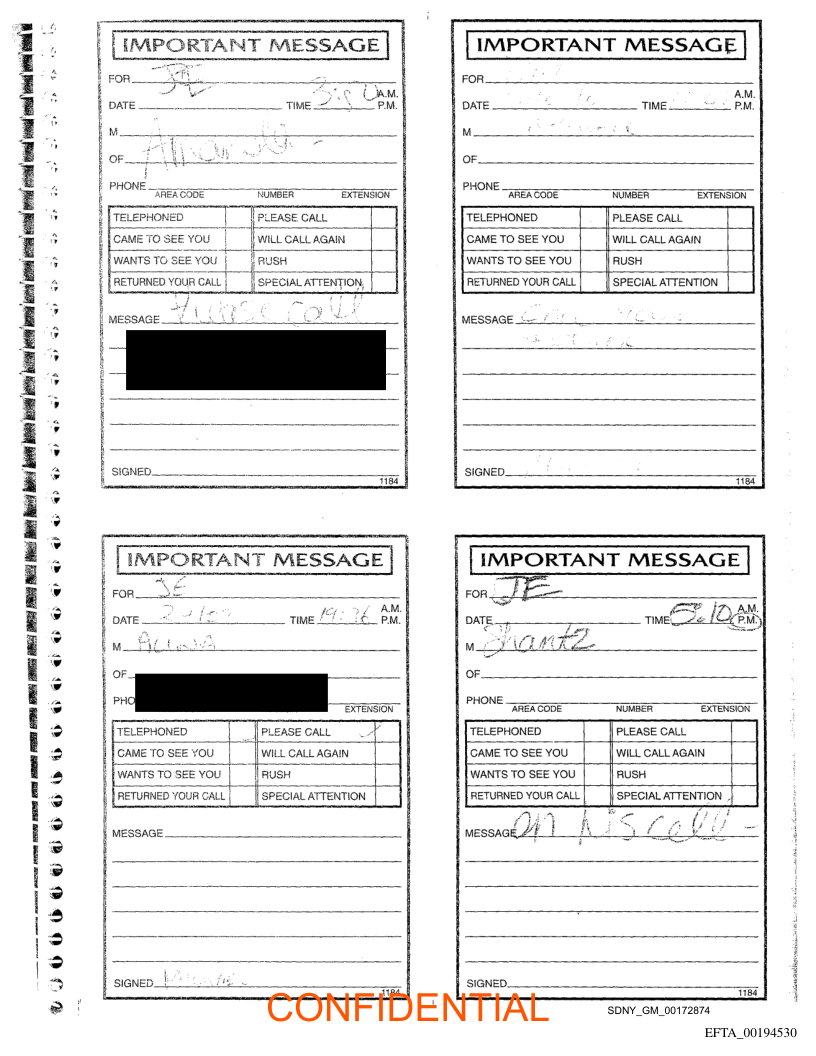 IMPORTANT MESSAGE
FOR JE
A.M.
DATE TIME 3:50 P.M.
M
OF Amanda -
PHONE
AREA CODE NUMBER EXTENSION
TELEPHONED PLEASE CALL
CAME TO SEE YOU WILL CALL AGAIN
WANTS TO SEE YOU RUSH
RETURNED YOUR CALL SPECIAL ATTENTION
MESSAGE Please call
SIGNED
1184
IMPORTANT MESSAGE
FOR
A.M.
DATE TIME P.M.
M
OF
PHONE
AREA CODE NUMBER EXTENSION
TELEPHONED PLEASE CALL
CAME TO SEE YOU WILL CALL AGAIN
WANTS TO SEE YOU RUSH
RETURNED YOUR CALL SPECIAL ATTENTION
MESSAGE
SIGNED
1184
IMPORTANT MESSAGE
FOR JE
A.M.
DATE TIME P.M.
M ALINA
OF
PHO
EXTENSION
TELEPHONED PLEASE CALL ✓
CAME TO SEE YOU WILL CALL AGAIN
WANTS TO SEE YOU RUSH
RETURNED YOUR CALL SPECIAL ATTENTION
MESSAGE
SIGNED
1184
IMPORTANT MESSAGE
FOR JE
A.M.
DATE TIME 5:10 P.M.
M Shantz
OF
PHONE
AREA CODE NUMBER EXTENSION
TELEPHONED PLEASE CALL
CAME TO SEE YOU WILL CALL AGAIN
WANTS TO SEE YOU RUSH
RETURNED YOUR CALL SPECIAL ATTENTION
MESSAGE on his cell -
SIGNED
1184
CONFIDENTIAL
SDNY_GM_00172874
EFTA_00194530